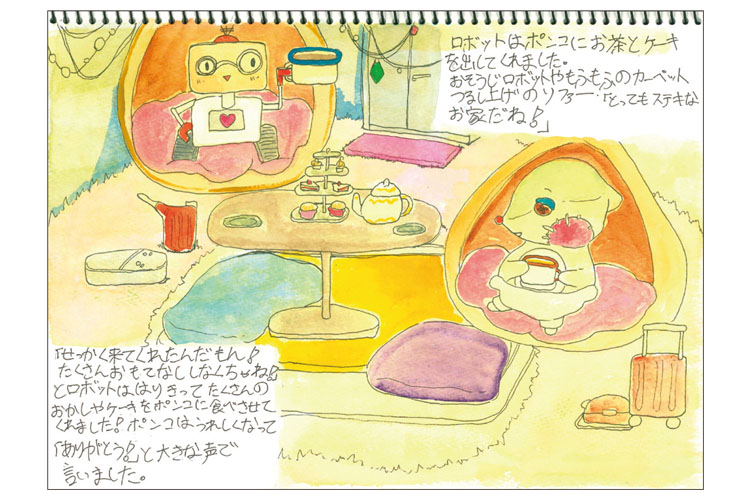 ロボットはポンコにお茶とケーキ
を出してくれました。
おそうじロボットやもふもふのカーペット
つるし上げのソファー・「とってもステキな
お家だね!」
「せっかく来てくれたんだもん!
たくさんおもてなししなくちゃね!」
とロボットははりきってたくさんの
おかしやケーキをポンコに食べさせて
くれました!ポンコはうれしくなって
「ありがとう!」と大きな声で
言いました。